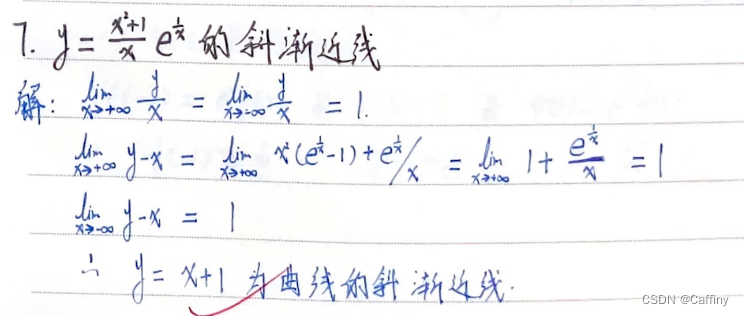 7. y = \frac{x²+1}{x} e^{\frac{1}{x}} 的斜渐近线
解: \lim_{x→+∞} \frac{y}{x} = \lim_{x→-∞} \frac{y}{x} = 1.
\lim_{x→+∞} y-x = \lim_{x→+∞} x²(e^{\frac{1}{x}}-1)+e^{\frac{1}{x}}/x = \lim_{x→+∞} 1+\frac{e^{\frac{1}{x}}}{x} = 1
\lim_{x→-∞} y-x = 1
∴ y = x+1 为曲线的斜渐近线.
CSDN @Caffiny